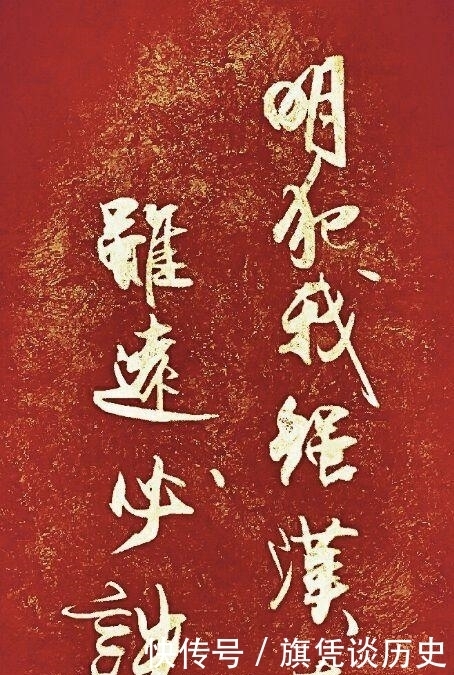 明犯我强漢
雖遠必誅
快传号 / 旗凭谈历史